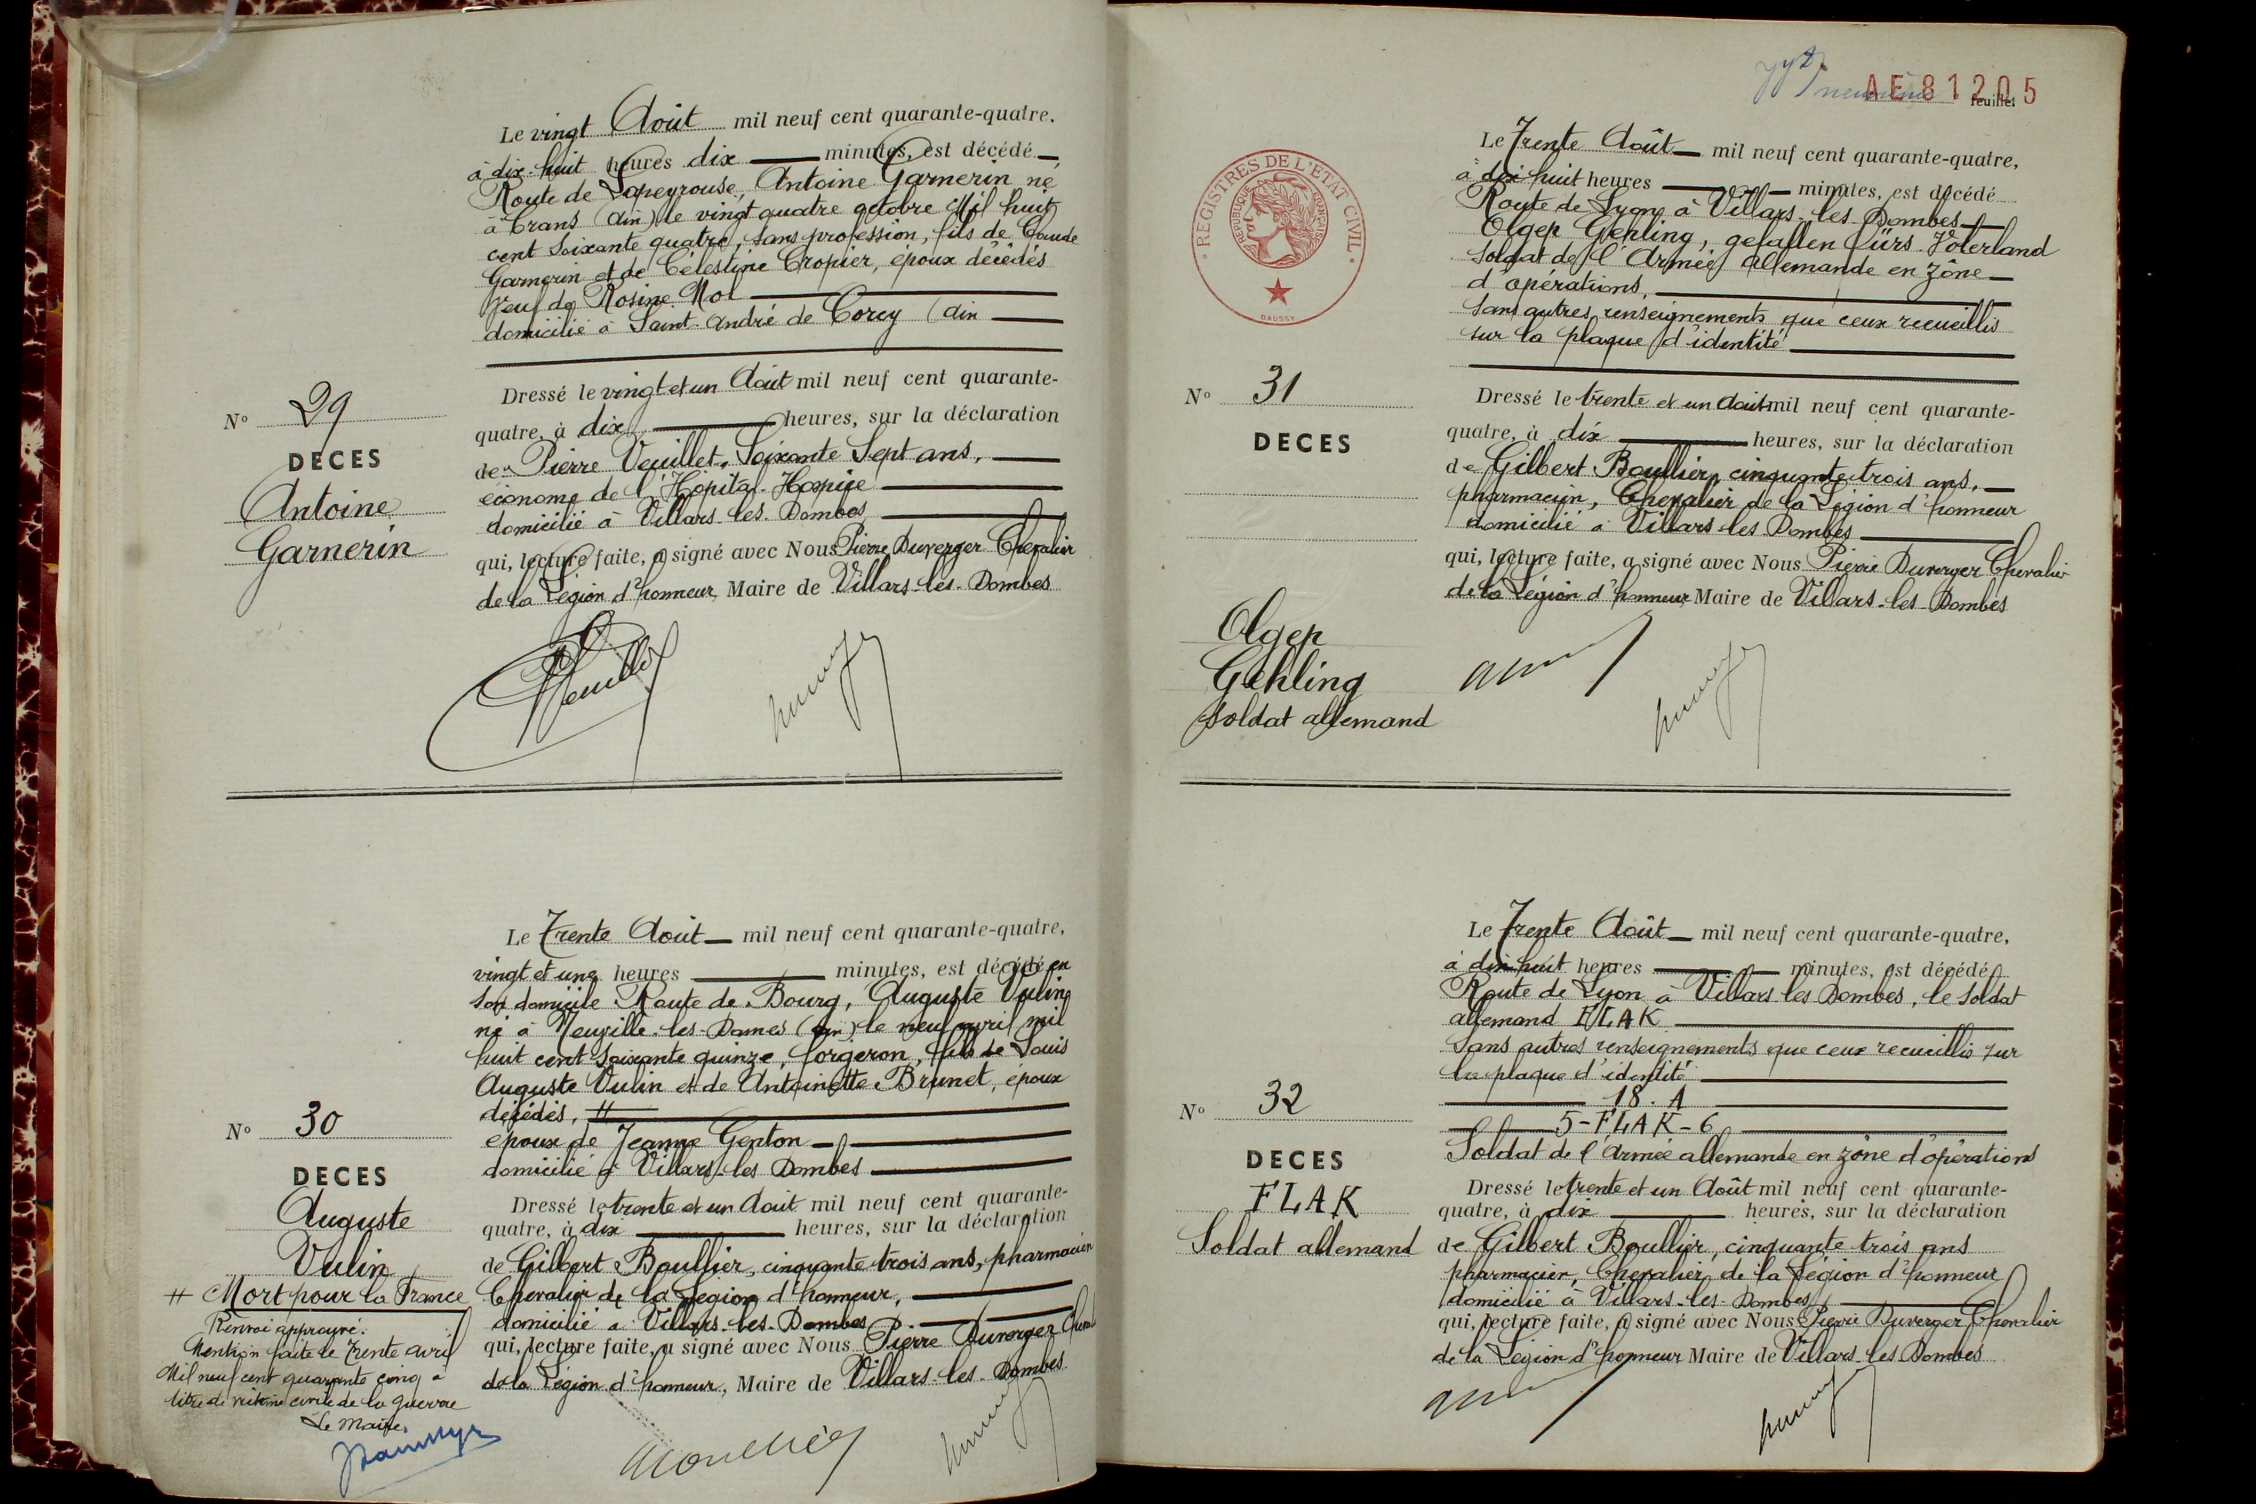 Le vingt Août mil neuf cent quarante-quatre,
à dix-huit heures dix minutes, est décédé
Route de Lapeyrouse, Antoine Garnerin né
à Crans (Ain) le vingt quatre octobre Mil huit
cent soixante quatre, sans profession, fils de Claude
Garnerin et de Célestine Cropier, époux décédés
Veuf de Rosine Mol
domicilié à Saint-André de Corcy (Ain
Dressé le vingt et un Août mil neuf cent quarante-
quatre, à dix heures, sur la déclaration
de Pierre Veuillet, Soixante Sept ans,
économe de l'Hôpital-Hospice
domicilié à Villars-les-Dombes
qui, lecture faite, a signé avec Nous Pierre Duverger Chevalier
de la Légion d'honneur, Maire de Villars-les-Dombes
N° 29
DECES
Antoine
Garnerin
Le Trente Août mil neuf cent quarante-quatre,
vingt et une heures minutes, est décédé en
son domicile Route de Bourg, Auguste Vulin
né à Neuville-les-Dames (Ain) le neuf avril mil
huit cent soixante quinze, forgeron, fils de Louis
Auguste Vulin et de Antoinette Brunet, époux
décédés, #
époux de Jeanne Genton
domicilié à Villars-les Dombes
Dressé le trente et un Août mil neuf cent quarante-
quatre, à dix heures, sur la déclaration
de Gilbert Boullier, cinquante trois ans, pharmacien
Chevalier de la Légion d'honneur,
domicilié à Villars-les-Dombes
qui, lecture faite, a signé avec Nous Pierre Duverger
de la Légion d'honneur, Maire de Villars-les-Dombes
N° 30
DECES
Auguste
Vulin
# Mort pour la France
Renvoi approuvé.
Mention faite le Trente avril
Mil neuf cent quarante cinq à
titre de victime civile de la guerre
Le Maire,
AE 81205
feuillet
REGISTRES DE L'ETAT CIVIL
REPUBLIQUE FRANÇAISE
DAUSSY
Le Trente Août mil neuf cent quarante-quatre,
à dix huit heures minutes, est décédé
Route de Lyon à Villars-les-Dombes
Olgep Gehling, gefallen fürs Voterland
soldat de l'Armée Allemande en zône
d'opérations,
sans autres renseignements que ceux recueillis
sur la plaque d'identité
Dressé le trente et un Août mil neuf cent quarante-
quatre, à dix heures, sur la déclaration
de Gilbert Boullier, cinquante trois ans,
pharmacien, Chevalier de la Légion d'honneur
domicilié à Villars-les Dombes
qui, lecture faite, a signé avec Nous Pierre Duverger Chevalier
de la Légion d'honneur Maire de Villars-les-Dombes
N° 31
DECES
Olgep
Gehling
soldat allemand
Le Trente Août mil neuf cent quarante-quatre,
à dix huit heures minutes, est décédé
Route de Lyon à Villars les Dombes, le soldat
allemand FLAK
sans autres renseignements que ceux recueillis sur
la plaque d'identité
18. A
5-FLAK-6
Soldat de l'Armée allemande en zône d'opérations
Dressé le trente et un Août mil neuf cent quarante-
quatre, à dix heures, sur la déclaration
de Gilbert Boullier, cinquante trois ans
pharmacien, Chevalier de la Légion d'honneur
domicilié à Villars-les-Dombes
qui, lecture faite, a signé avec Nous Pierre Duverger Chevalier
de la Légion d'honneur Maire de Villars-les Dombes
N° 32
DECES
FLAK
Soldat allemand